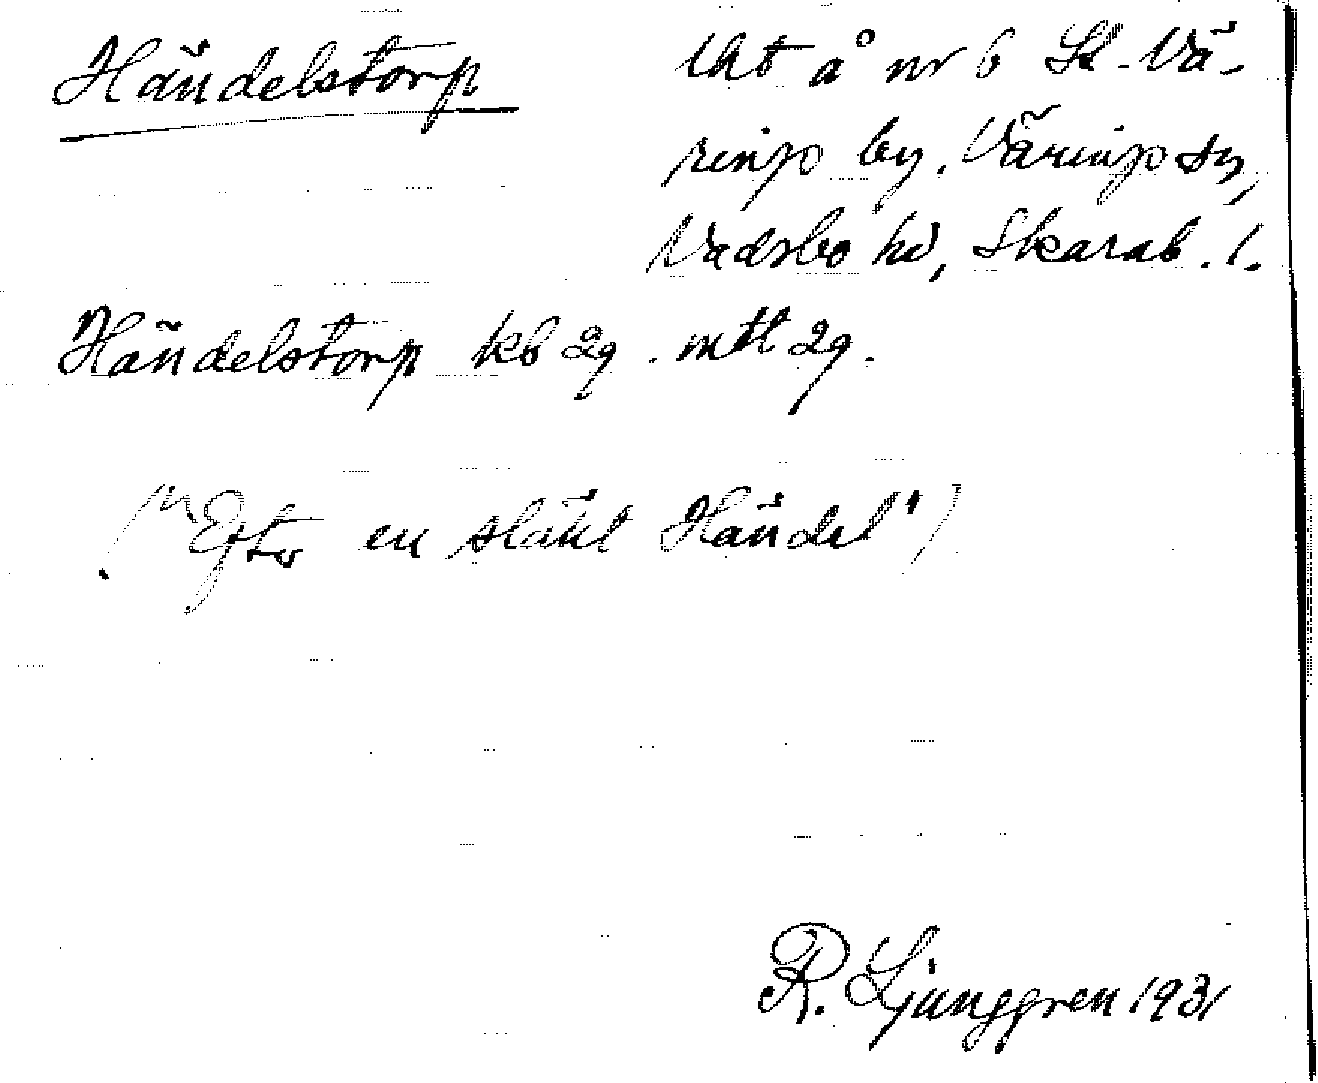 Händelstorp
lht å nr 6 St. Vä-
rings by. Värings sn,
Vadsbo hd, Skarab. l.
Händelstorp kb 29. mtl 29.
("Efter en släkt Händel")
R. Ljunggren 1931